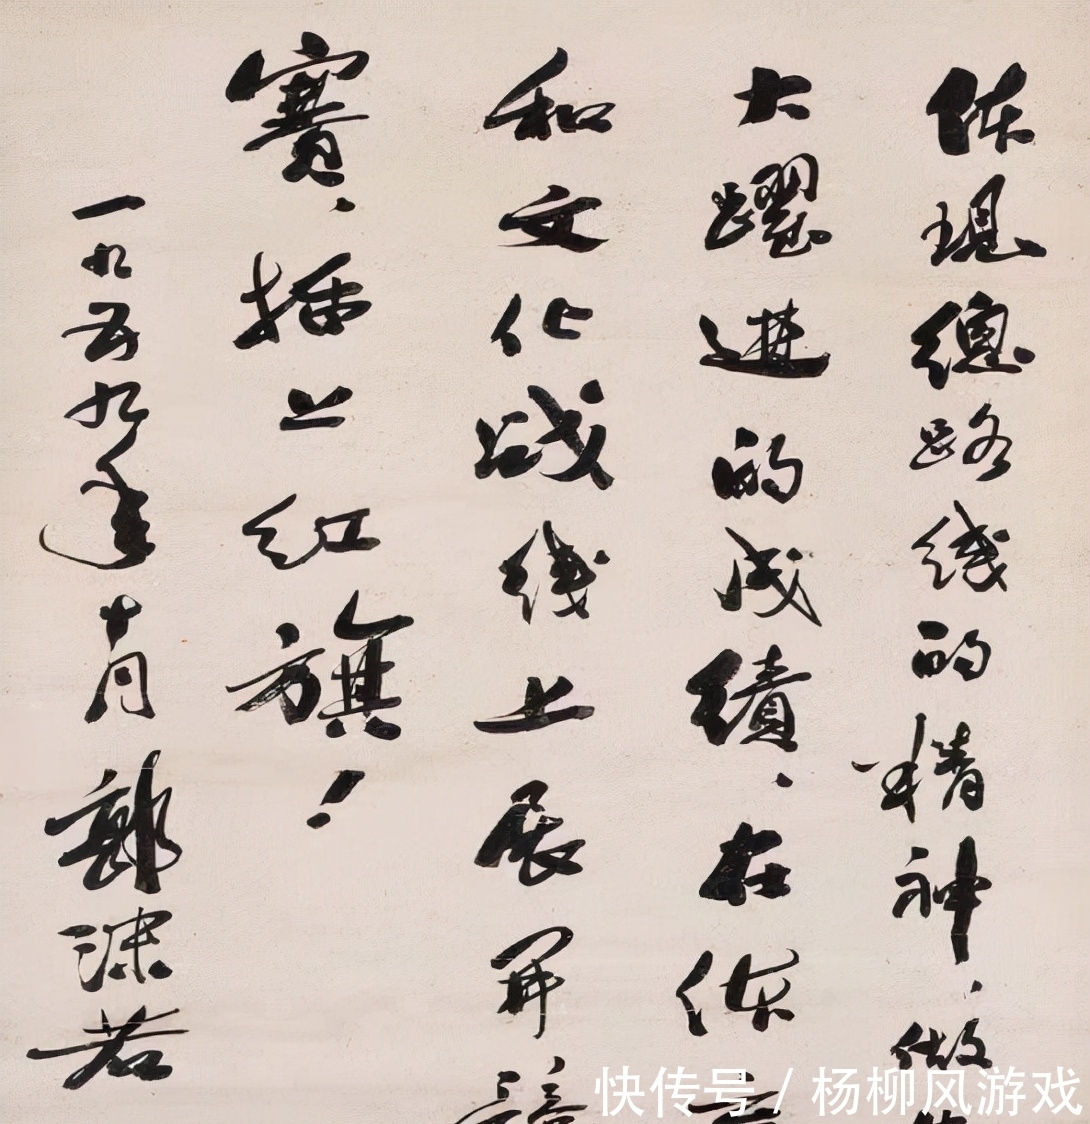 体現總路线的精神、做
大躍進的成績、在体
和文化战线上展开、
賽、插上红旗！
一九五九年十月郭沫若
快传号 / 杨柳风游戏